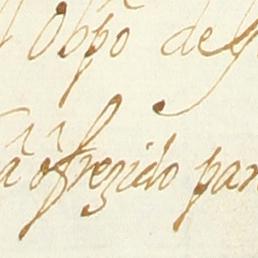 Obpõ de
a ofrezido par